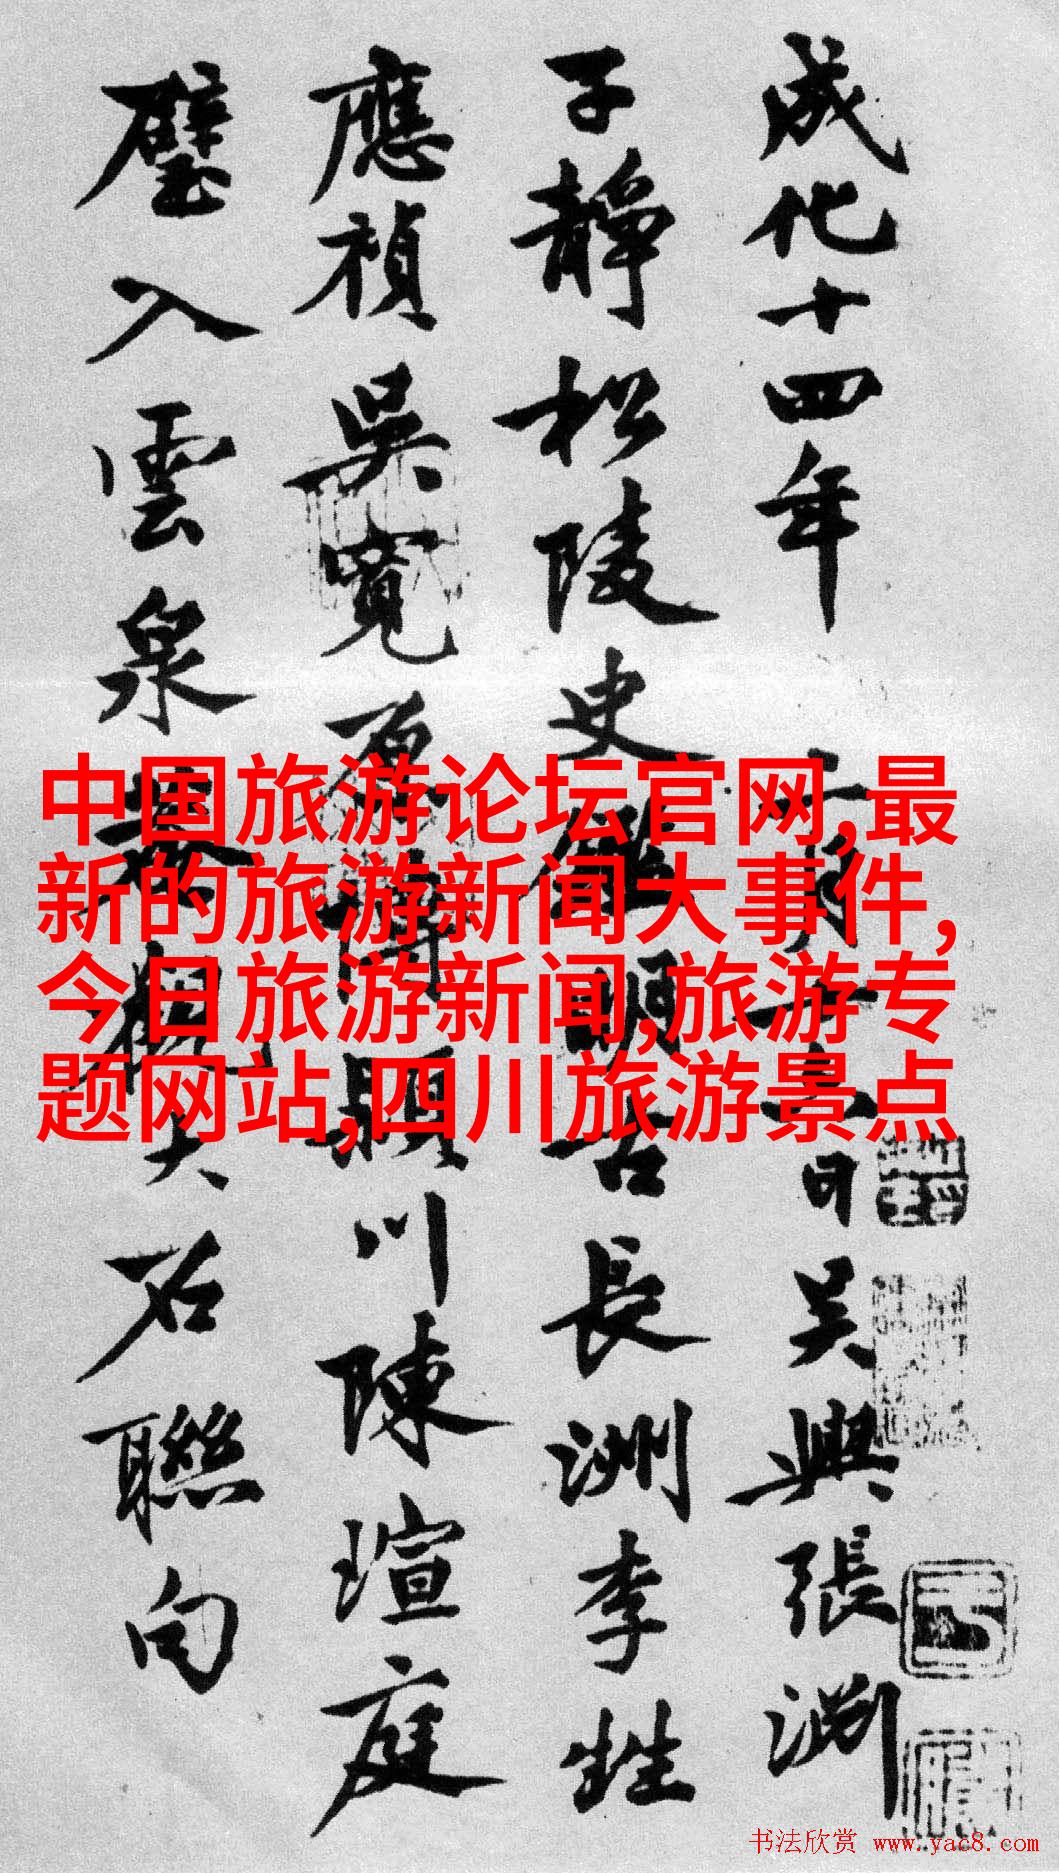 成化十四年月十日吳興張淵
子靜松陵史鑑明古長洲李甡
應禎吳寬原博潁川陳瑄庭
璧入雲泉觀大石聯句
中国旅游论坛官网,最
新的旅游新闻大事件,
今日旅游新闻,旅游专
题网站,四川旅游景点
书法欣赏 www.yac8.com